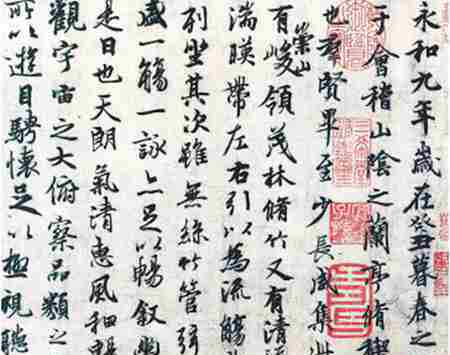 永和九年歲在癸丑暮春之
于會稽山陰之蘭亭脩禊
也羣賢畢至少長咸集此
有崇山峻領茂林脩竹又有清
湍暎帶左右引以為流觴
列坐其次雖無絲竹管弦
盛一觴一詠亦足以暢敘幽
是日也天朗氣清惠風和暢
觀宇宙之大俯察品類之
所以遊目騁懷足以極視聽